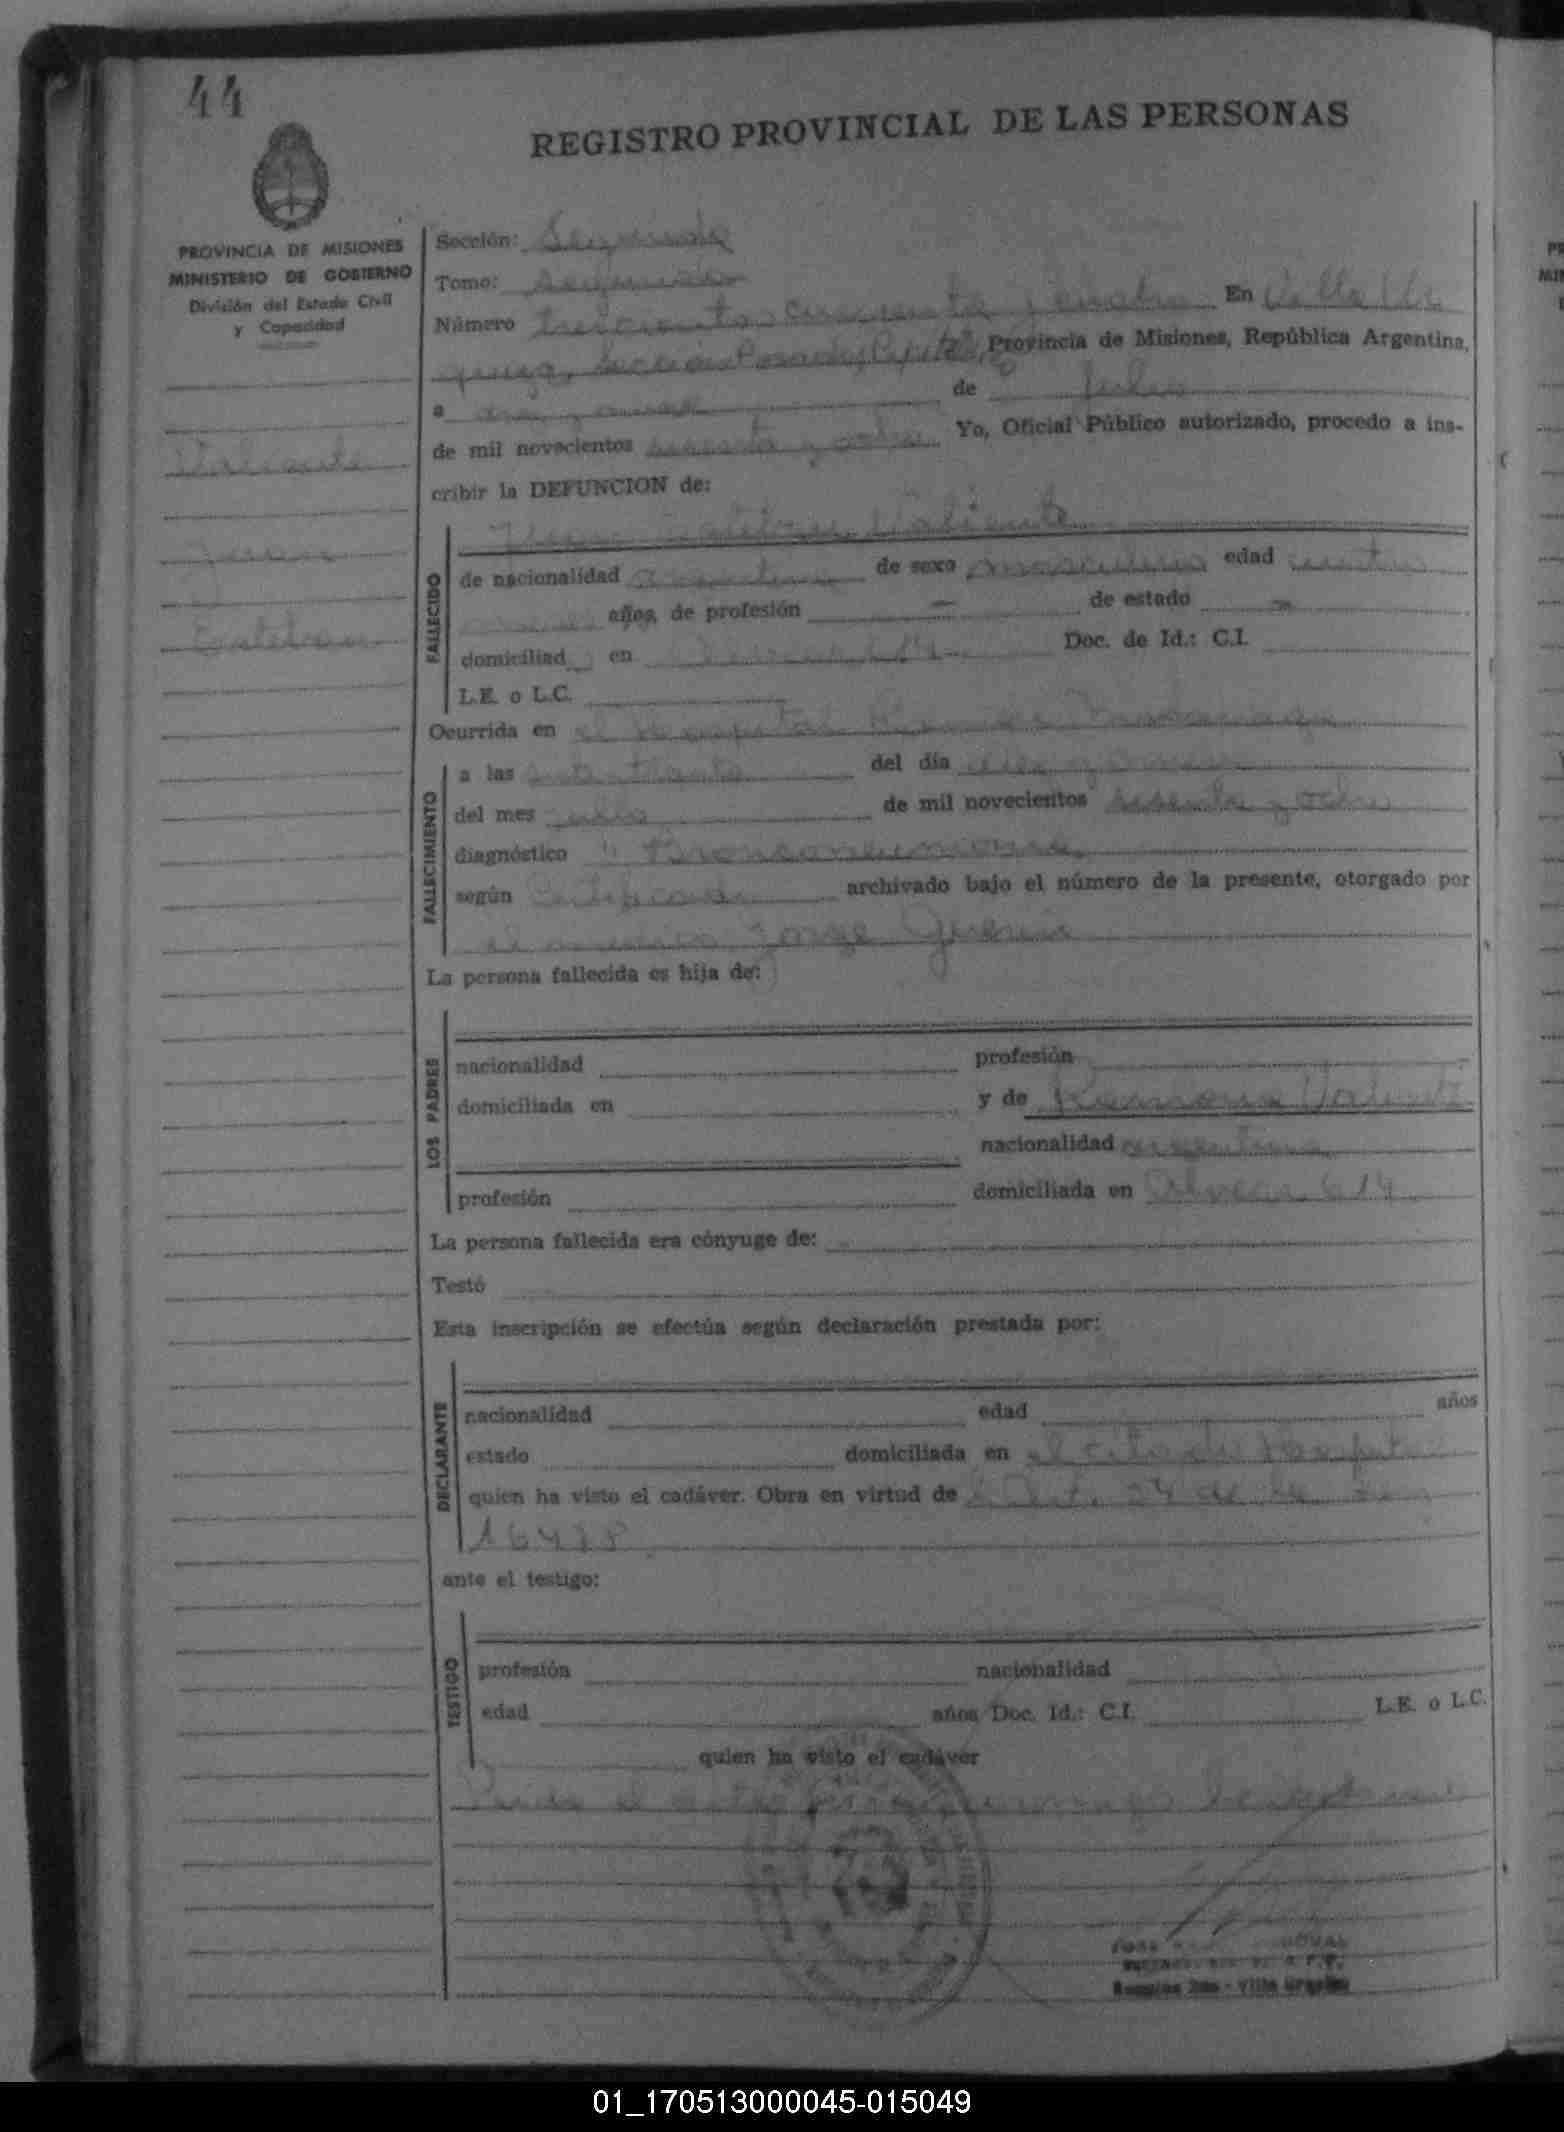 44
REGISTRO PROVINCIAL DE LAS PERSONAS
PROVINCIA DE MISIONES
MINISTERIO DE GOBIERNO
División del Estado Civil
y Capacidad
Valiente
Juan
Esteban
Sección: Segunda
Tomo: Segundo
Número trescientos cincuenta y cuatro En Villa Ur
quiza, Sección Posadas, Capital, Provincia de Misiones, República Argentina,
a de Julio
de mil novecientos sesenta y ocho Yo, Oficial Público autorizado, procedo a ins-
cribir la DEFUNCION de:
FALLECIDO
Juan Esteban Valiente
de nacionalidad argentina de sexo masculino edad cuatro
meses años, de profesión — de estado —
domiciliad en 614 Doc. de Id.: C.I.
L.E. o L.C.
Ocurrida en el Hospital Ramón Madariaga
FALLECIMIENTO
a las siete treinta del día
del mes julio de mil novecientos sesenta y ocho
diagnóstico " Bronconeumonía
según Certificado archivado bajo el número de la presente, otorgado por
el médico Jorge
La persona fallecida es hija de:
LOS PADRES
nacionalidad profesión
domiciliada en y de Ramona Valiente
nacionalidad argentina
profesión domiciliada en Alvear 614
La persona fallecida era cónyuge de:
Testó
Esta inscripción se efectúa según declaración prestada por:
DECLARANTE
nacionalidad edad años
estado domiciliada en el citado Hospital
quien ha visto el cadáver. Obra en virtud de Art. 24 de la Ley
16478
ante el testigo:
TESTIGO
profesión nacionalidad
edad años Doc. Id.: C.I. L.E. o L.C.
quien ha visto el cadáver
el acta
Villa Urquiza
01_170513000045-015049